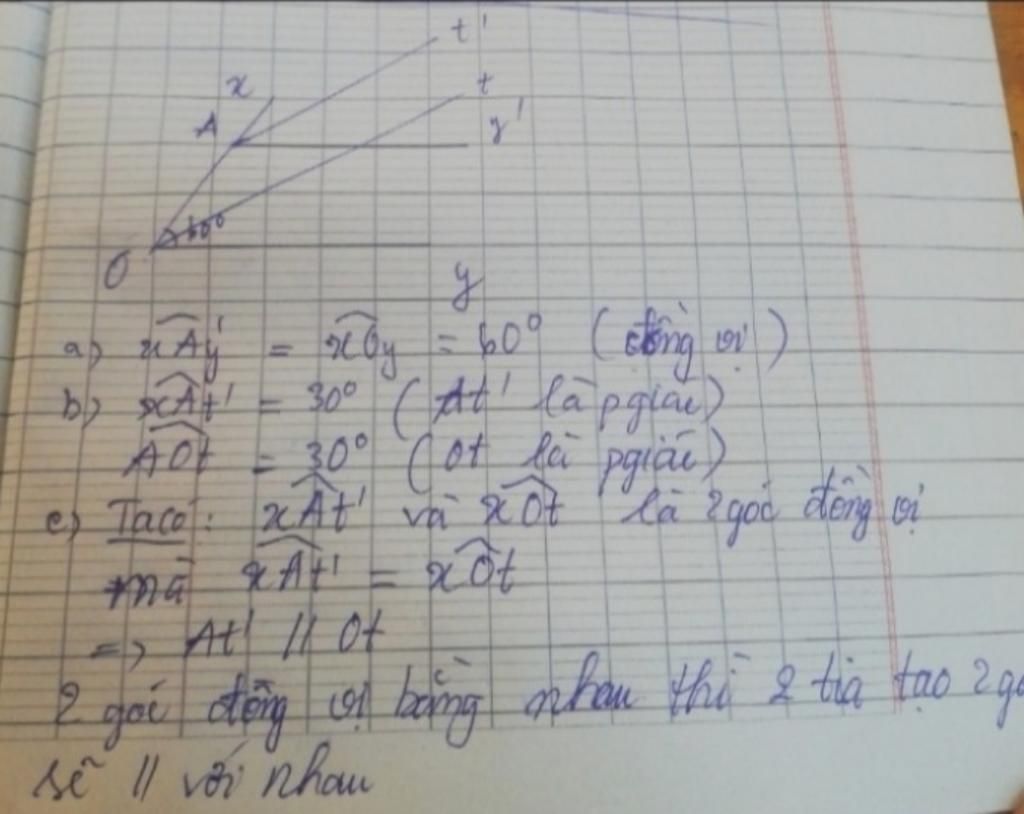 t'
x
t
A
y'
60°
O
y
a) xAy' = xOy = 60° (đồng vị)
b) xAt' = 30° (At' là pgiác)
AOt = 30° (Ot là pgiác)
c) Ta có: xAt' và xOt là 2 góc đồng vị
mà xAt' = xOt
=> At' // Ot
2 góc đồng vị bằng nhau thì 2 tia tạo 2 gó
sẽ // với nhau